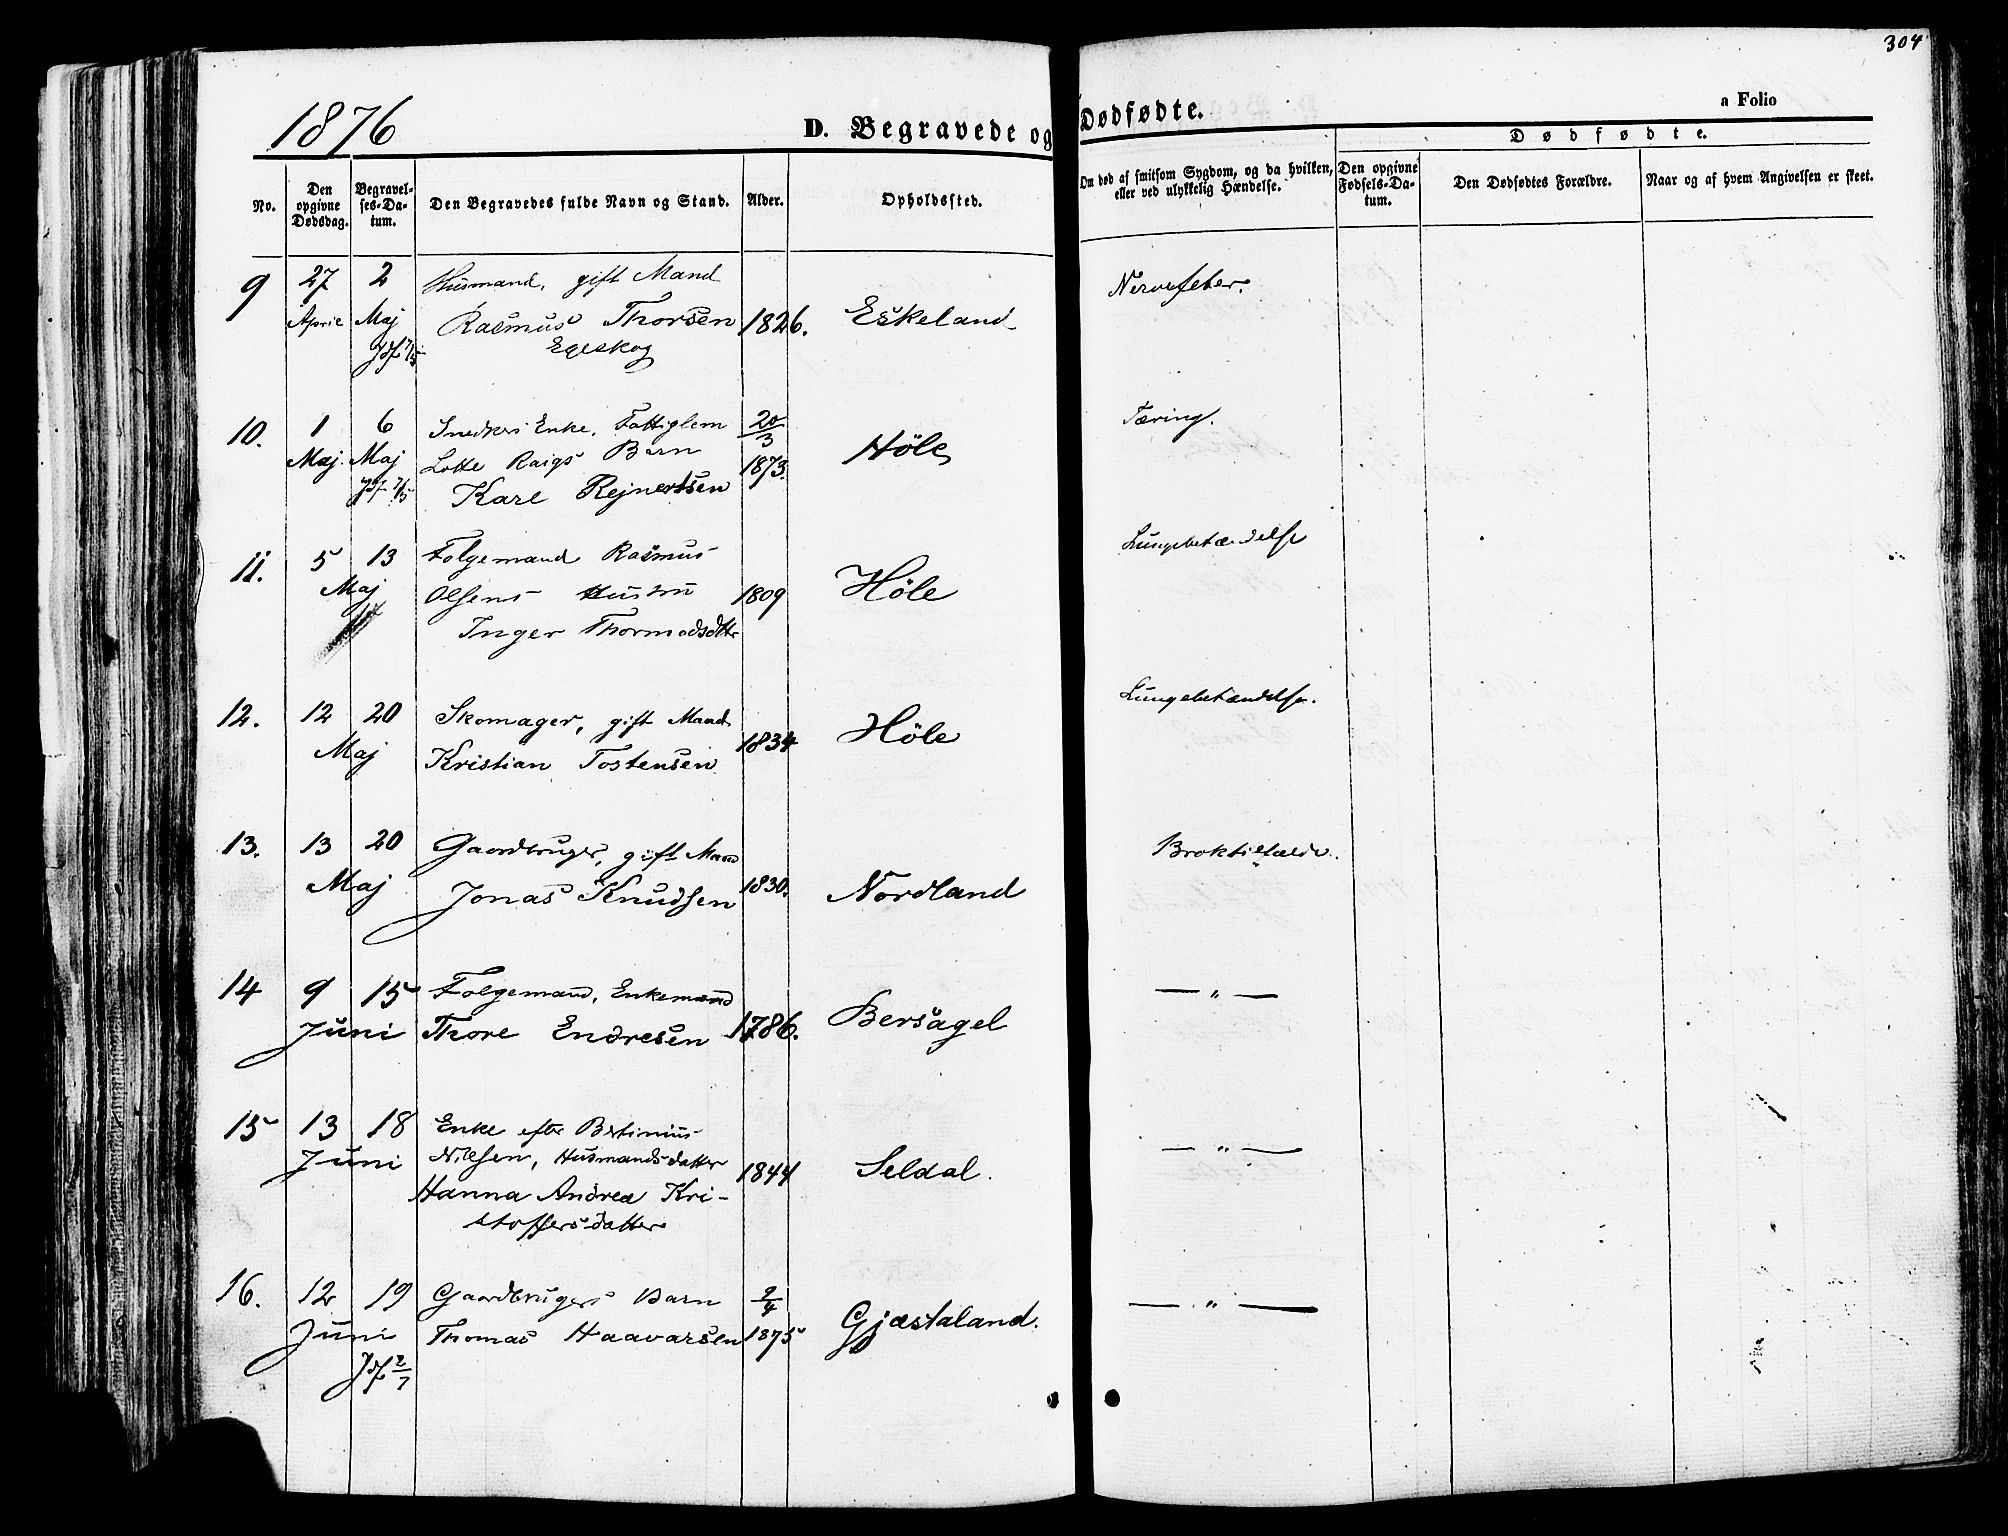 304
1876
D. Begravede og Dødfødte.
a Folio
Dødfødte.
No.
Den opgivne Dødsdag.
Begravelses-Datum.
Den Begravedes fulde Navn og Stand.
Alder.
Opholdssted.
Om død af smitsom Sygdom, og da hvilken, eller ved ulykkelig Hændelse.
Den opgivne Fødsels-Datum.
Den Dødfødtes Forældre.
Naar og af hvem Angivelsen er skeet.
9 27 2 Husmand, gift Mand Nervefeber.
April Maj Rasmus Thorsen 1826. Eskeland
Jdf 7/5 Egeskog
10. 1 6 Snedkers Enke, Fattiglem 20/3 Tæring.
Maj. Maj Lotte Raigs Barn 1873. Höle
Jdf 7/5 Karl Rejnertsen
11. 5 13 Folgemand Rasmus Lungebetændelse
Maj Olsens Hustru 1809 Höle
Inger Thormodsdttr
12. 12 20 Skomager, gift Mand Lungebetændelse.
Maj Kristian Tostensen 1834 Höle
13. 13 20 Gaardbruger, gift Mand Broktilfælde.
Maj Jonas Knudsen 1830. Nordland
14 9 15 Folgemand, Enkemand — " —
Juni Thore Endresen 1786. Bersagel
15 13 18 Enke efter Bertinius — " —
Juni Nilsen, Husmandsdatter 1844 Seldal.
Hanna Andrea Kri-
stoffersdatter
16. 12 19 Gaardbrugers Barn 2/4 — " —
Juni Thomas Haavarsen 1875 Gjæstaland.
Jdf 2/7